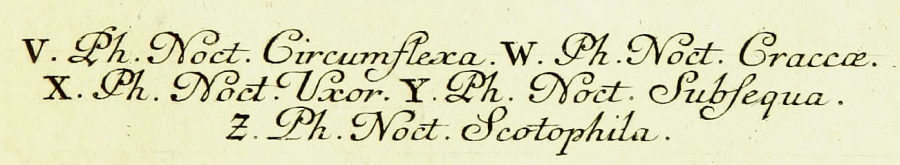 V. Ph. Noct. Circumflexa. W. Ph. Noct. Craccæ.
X. Ph. Noct. Uxor. Y. Ph. Noct. Subſequa.
Z. Ph. Noct. Scotophila.